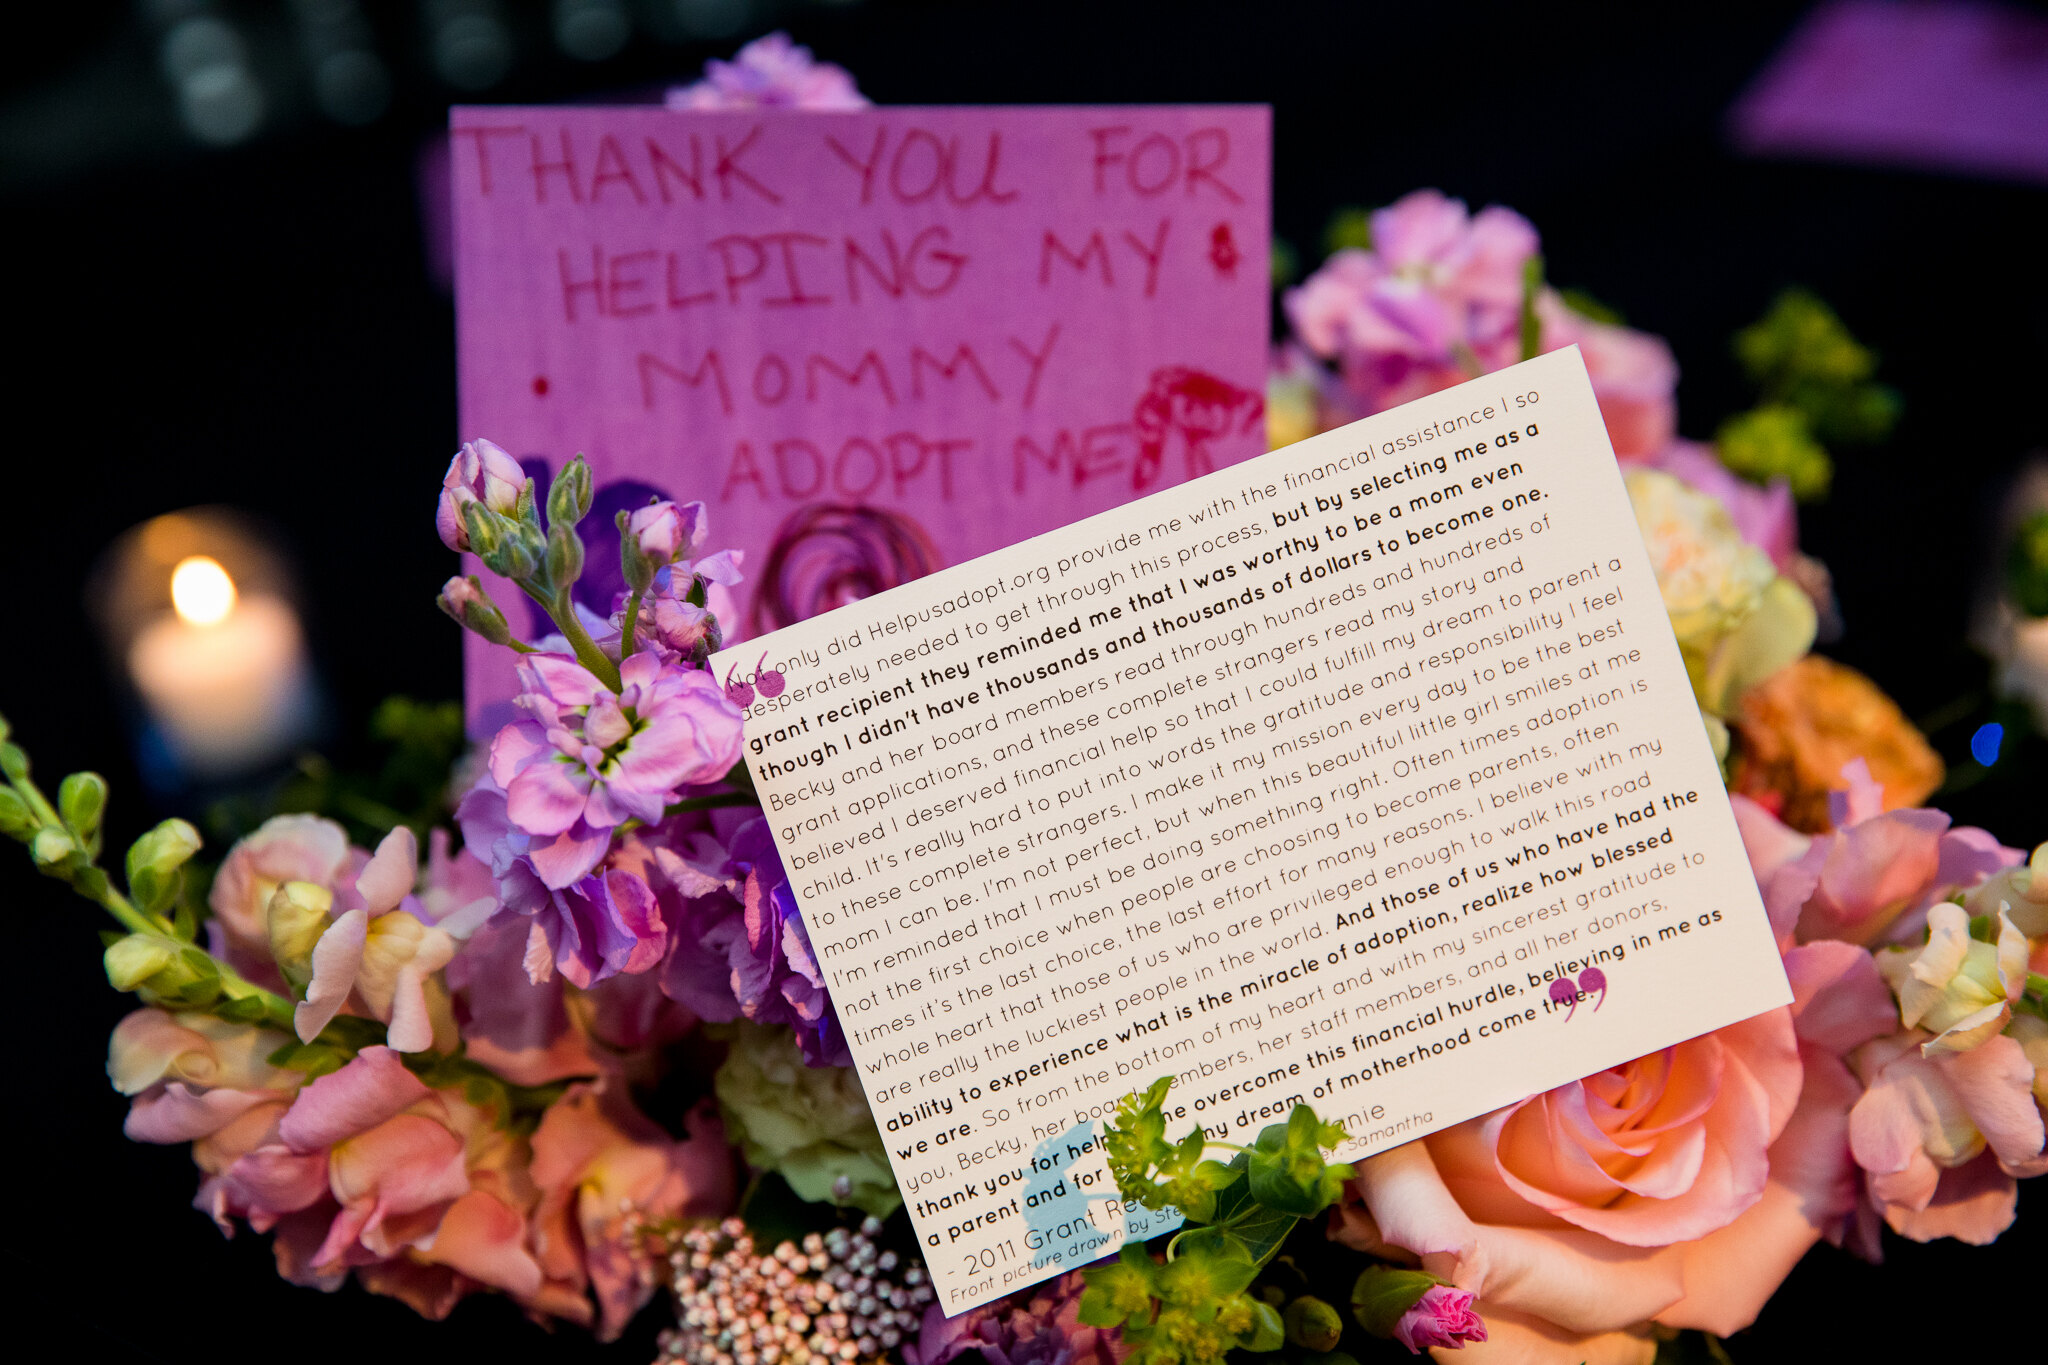 THANK YOU FOR
HELPING MY
MOMMY
ADOPT ME
Not only did Helpusadopt.org provide me with the financial assistance I so
desperately needed to get through this process, but by selecting me as a
grant recipient they reminded me that I was worthy to be a mom even
though I didn't have thousands and thousands of dollars to become one.
Becky and her board members read through hundreds and hundreds of
grant applications, and these complete strangers read my story and
believed I deserved financial help so that I could fulfill my dream to parent a
child. It's really hard to put into words the gratitude and responsibility I feel
to these complete strangers. I make it my mission every day to be the best
mom I can be. I'm not perfect, but when this beautiful little girl smiles at me
I'm reminded that I must be doing something right. Often times adoption is
not the first choice when people are choosing to become parents, often
times it's the last choice, the last effort for many reasons. I believe with my
whole heart that those of us who are privileged enough to walk this road
are really the luckiest people in the world. And those of us who have had the
ability to experience what is the miracle of adoption, realize how blessed
we are. So from the bottom of my heart and with my sincerest gratitude to
you, Becky, her board members, her staff members, and all her donors,
thank you for help me overcome this financial hurdle, believing in me as
a parent and for my dream of motherhood come true.
- 2011 Grant
Front picture drawn by Samantha